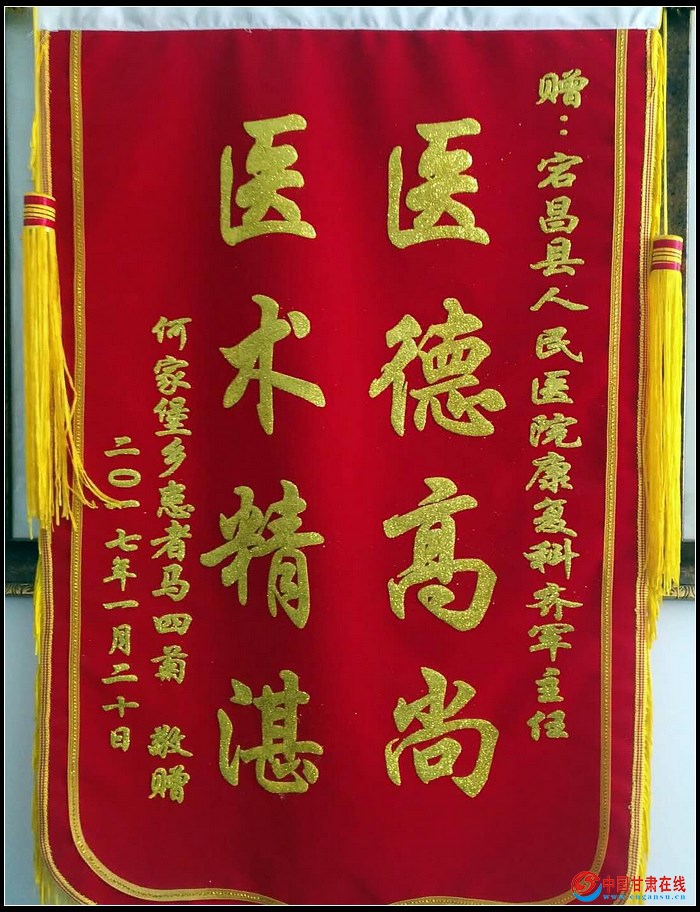 赠：宕昌县人民医院康复科齐军主任
医德高尚
医术精湛
何家堡乡患者马四菊 敬赠
二〇一七年一月二十日
中国甘肃在线
www.cngansu.cn